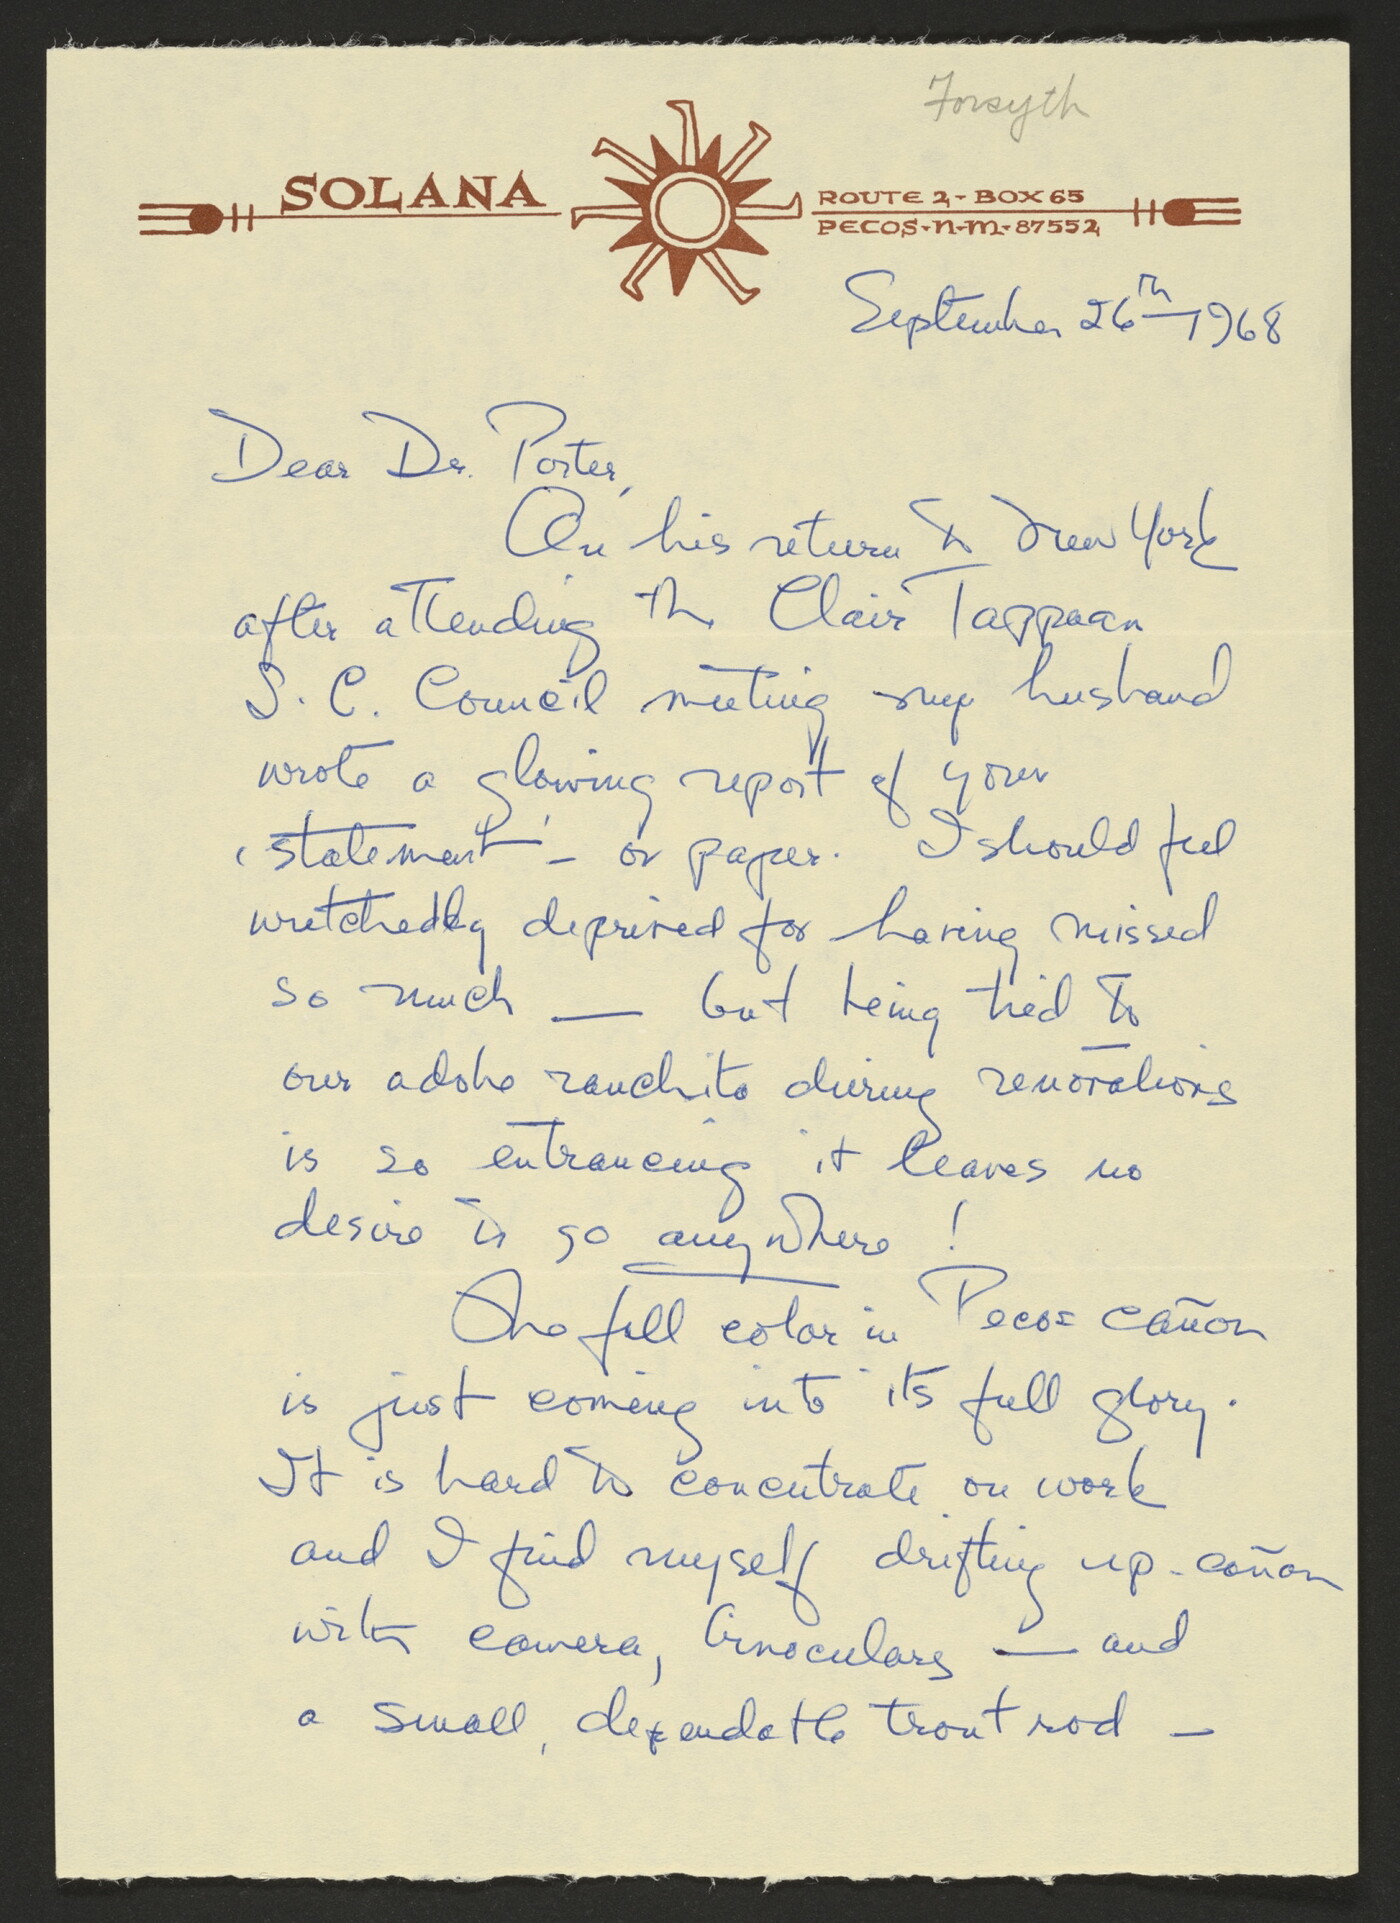 Forsyth
SOLANA
ROUTE 2 - BOX 65
PECOS - N - M - 87552
September 26th 1968
Dear Dr. Porter,
On his return to New York
after attending the Clair Tappaan
S. C. Council meeting my husband
wrote a glowing report of your
'statement' - or paper. I should feel
wretchedly deprived for having missed
so much — but being tied to
our adobe ranchito during renovations
is so entrancing it leaves no
desire to go anywhere!
The fall color in Pecos cañon
is just coming into its full glory.
It is hard to concentrate on work
and I find myself drifting up-cañon
with camera, binoculars — and
a small, dependable trout rod —